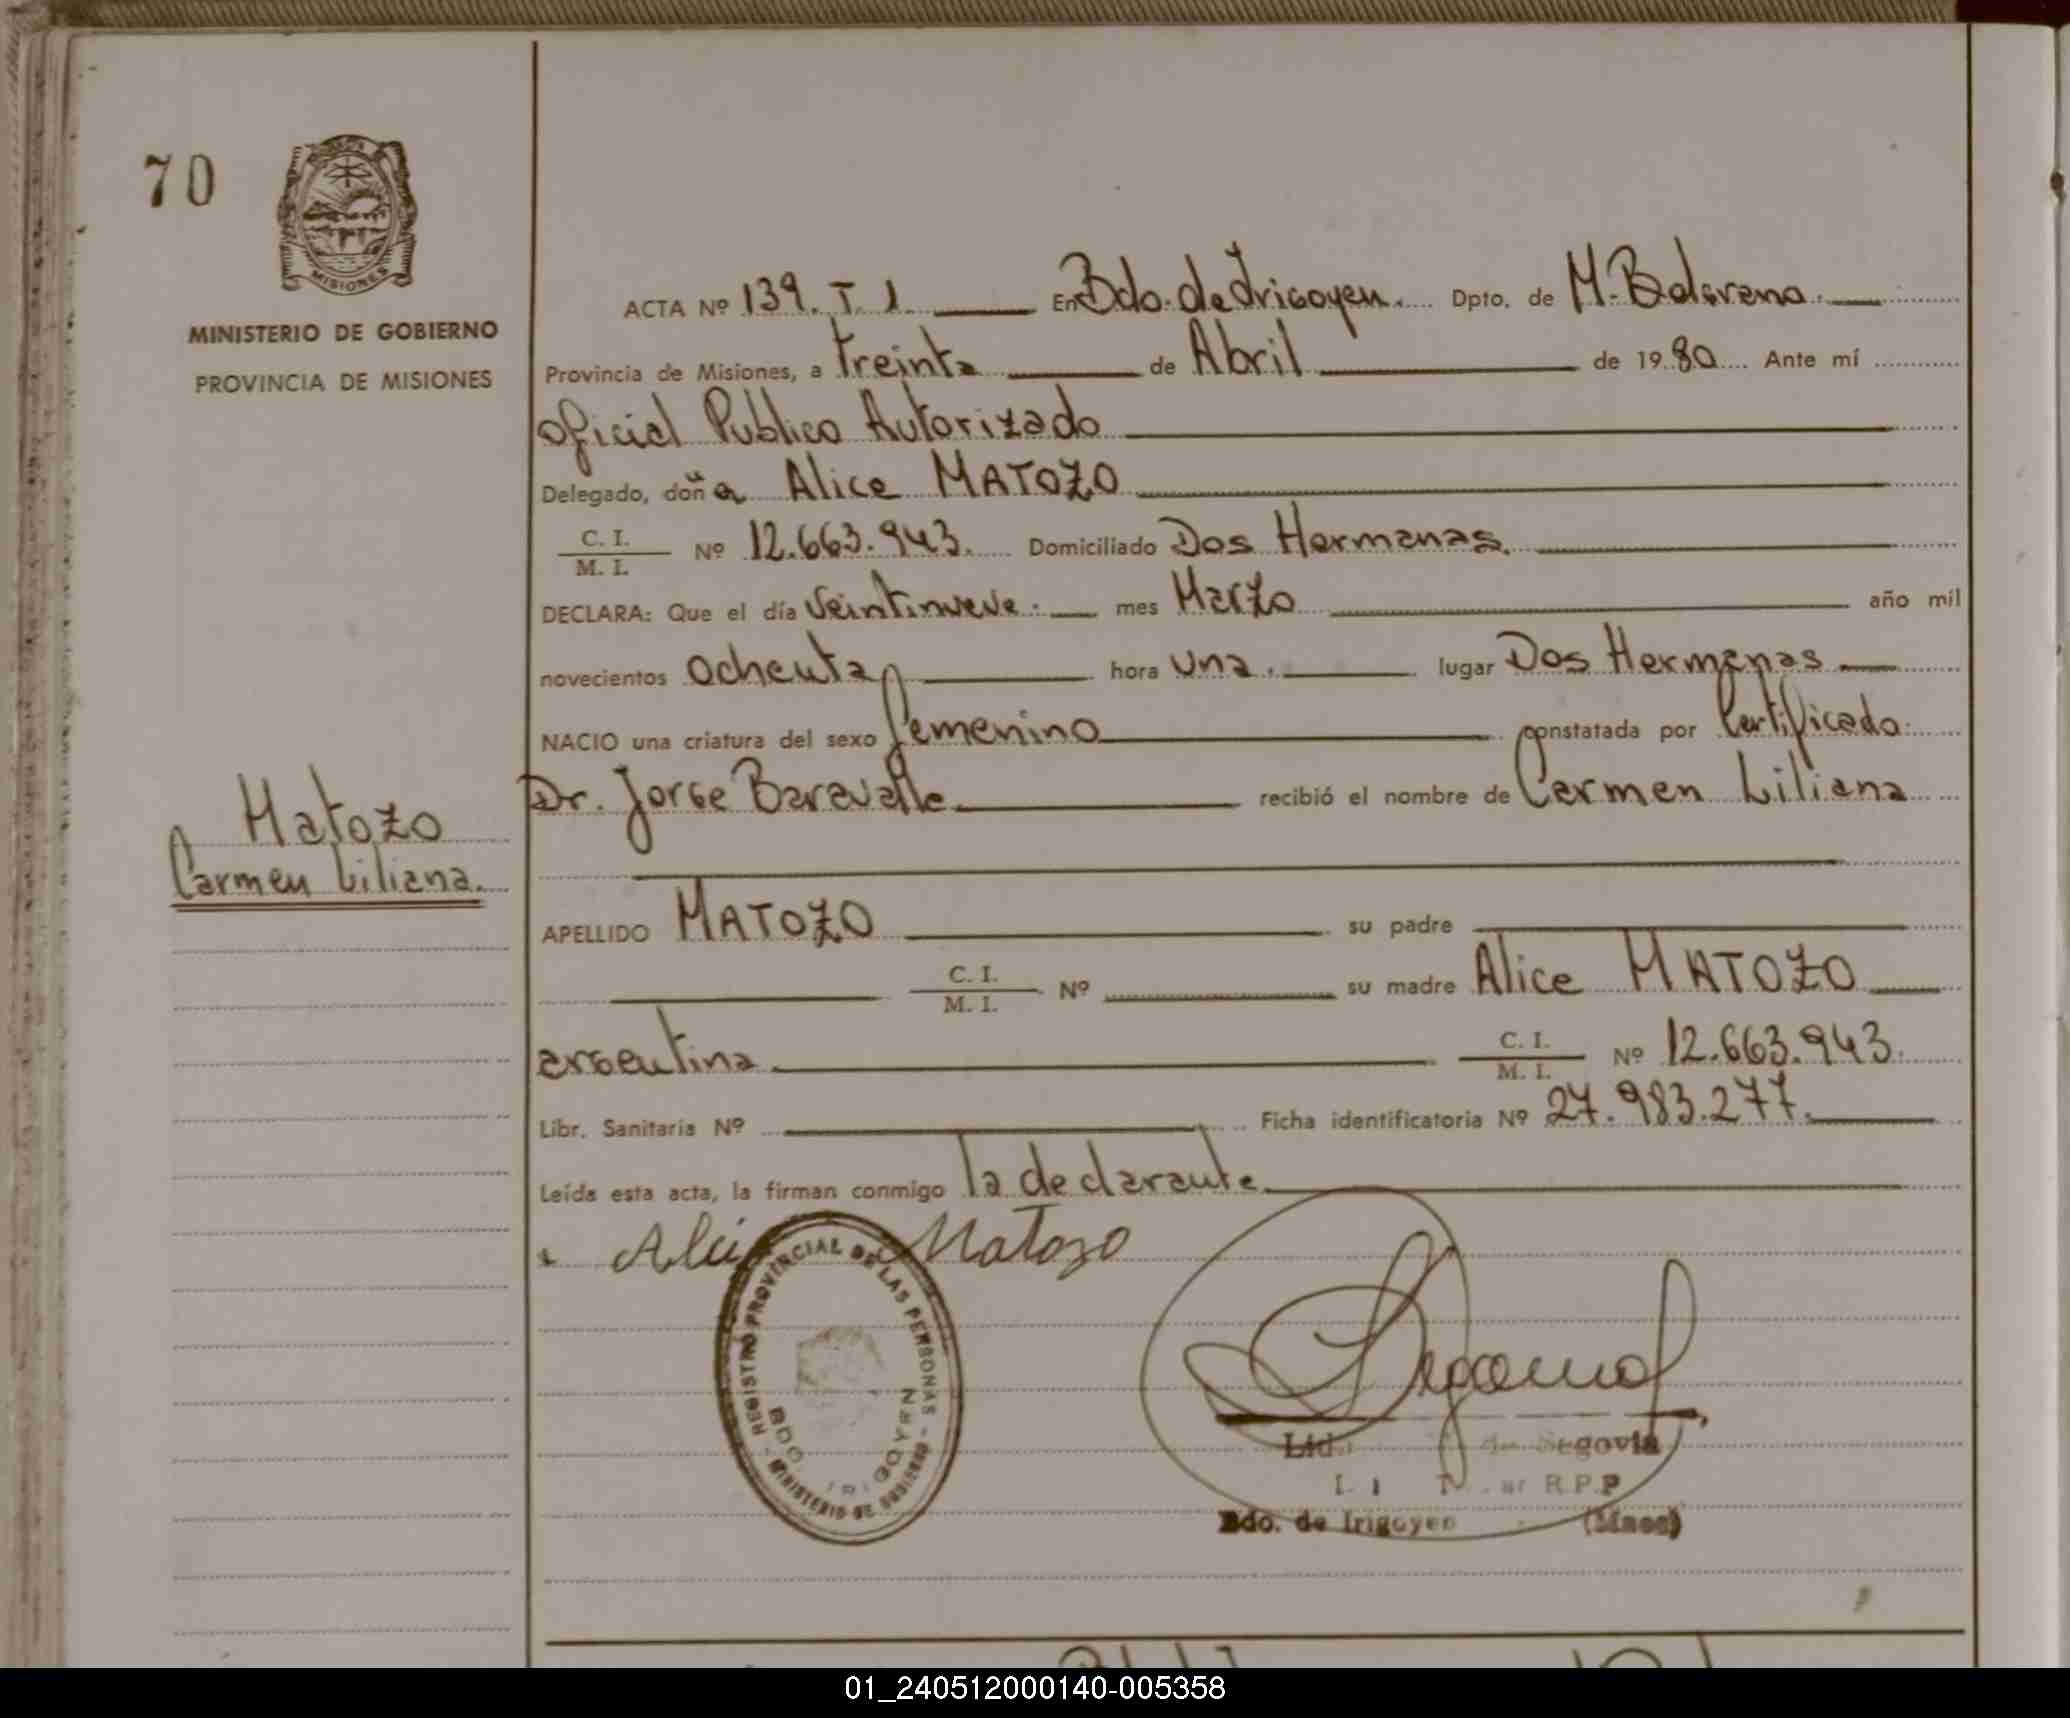 70
MISIONES
MINISTERIO DE GOBIERNO
PROVINCIA DE MISIONES
Matozo
Carmen Liliana.
ACTA Nº 139. T. 1. En Bdo. de Irigoyen. Dpto. de M. Belgrano.
Provincia de Misiones, a treinta de Abril de 1980 Ante mí
oficial Publico Autorizado
Delegado, doña Alice MATOZO
C. I. / M. I. Nº 12.663.943. Domiciliado Dos Hermanas.
DECLARA: Que el día veintinueve. mes Marzo año mil
novecientos ochenta hora una. lugar Dos Hermanas
NACIO una criatura del sexo femenino constatada por Certificado.
Dr. Jorge Baravalle recibió el nombre de Carmen Liliana
APELLIDO MATOZO su padre
C. I. / M. I. Nº su madre Alice MATOZO
argentina C. I. / M. I. Nº 12.663.943.
Libr. Sanitaria Nº Ficha identificatoria Nº 27.983.277.
Leída esta acta, la firman conmigo la declarante
Matozo
REGISTRO PROVINCIAL DE LAS PERSONAS - MINISTERIO DE GOBIERNO -
BDO IRIGOYEN
Segovia
R.P.P
Bdo. de Irigoyen (Mnes)
01_240512000140-005358